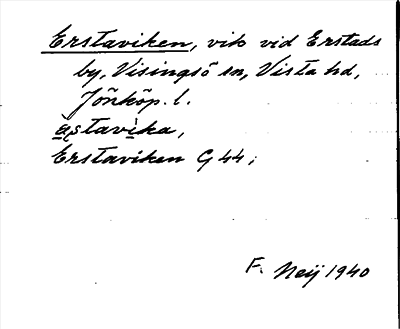 Erstaviken, vik vid Erstads
by, Visingsö sn, Vista hd,
Jönköp. l.
æstavika,
Erstaviken G 44;
F. Neij 1940